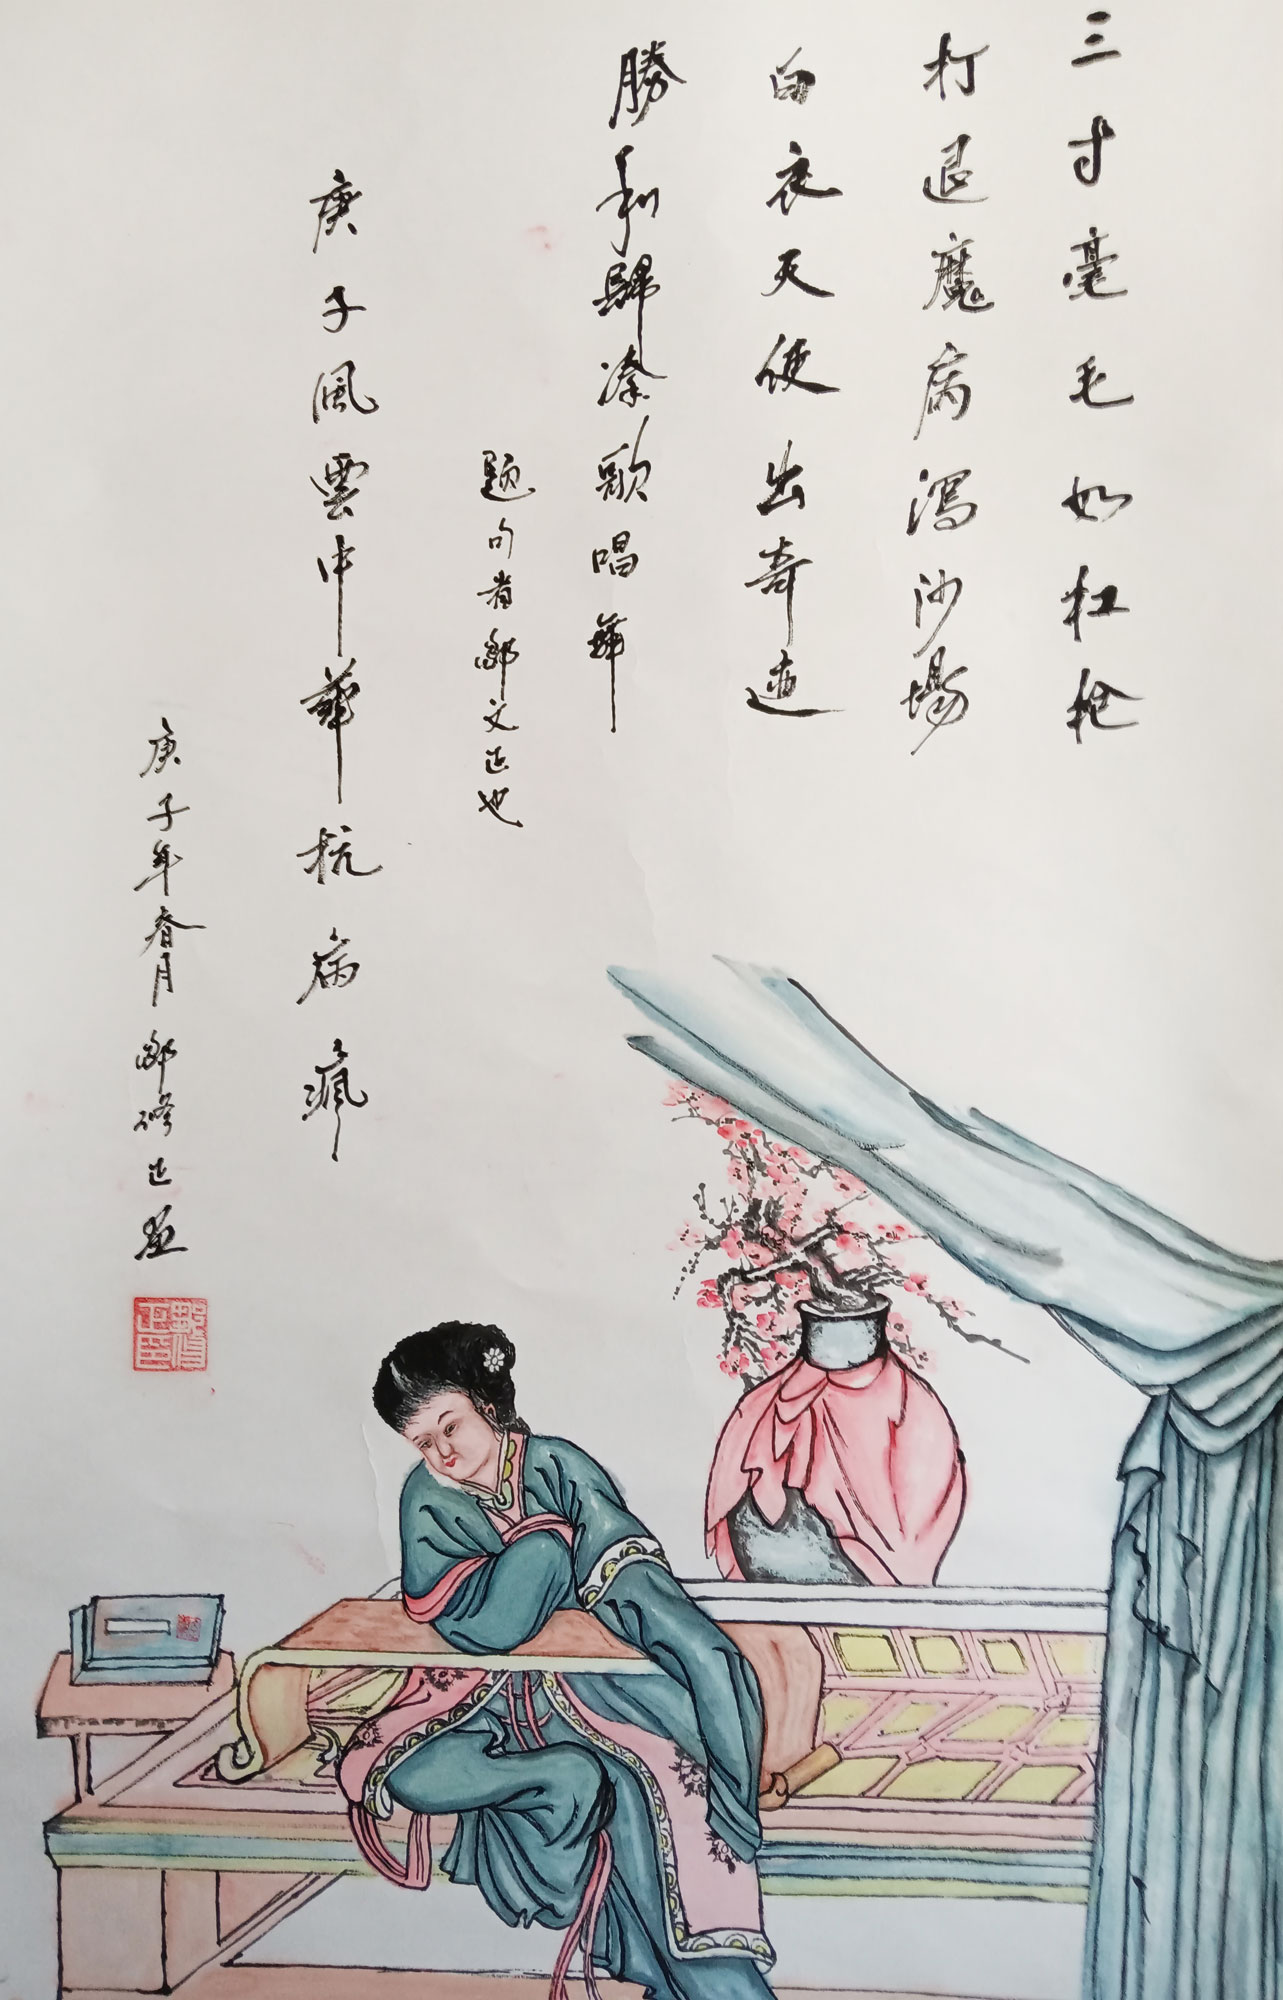 三寸毫毛如杠枪
打退魔病泻沙場
白衣天使出奇迹
勝利歸漆歌唱華
题句者鄒文正也
庚子風雲中華抗病瘋
庚子年春月鄒修正画